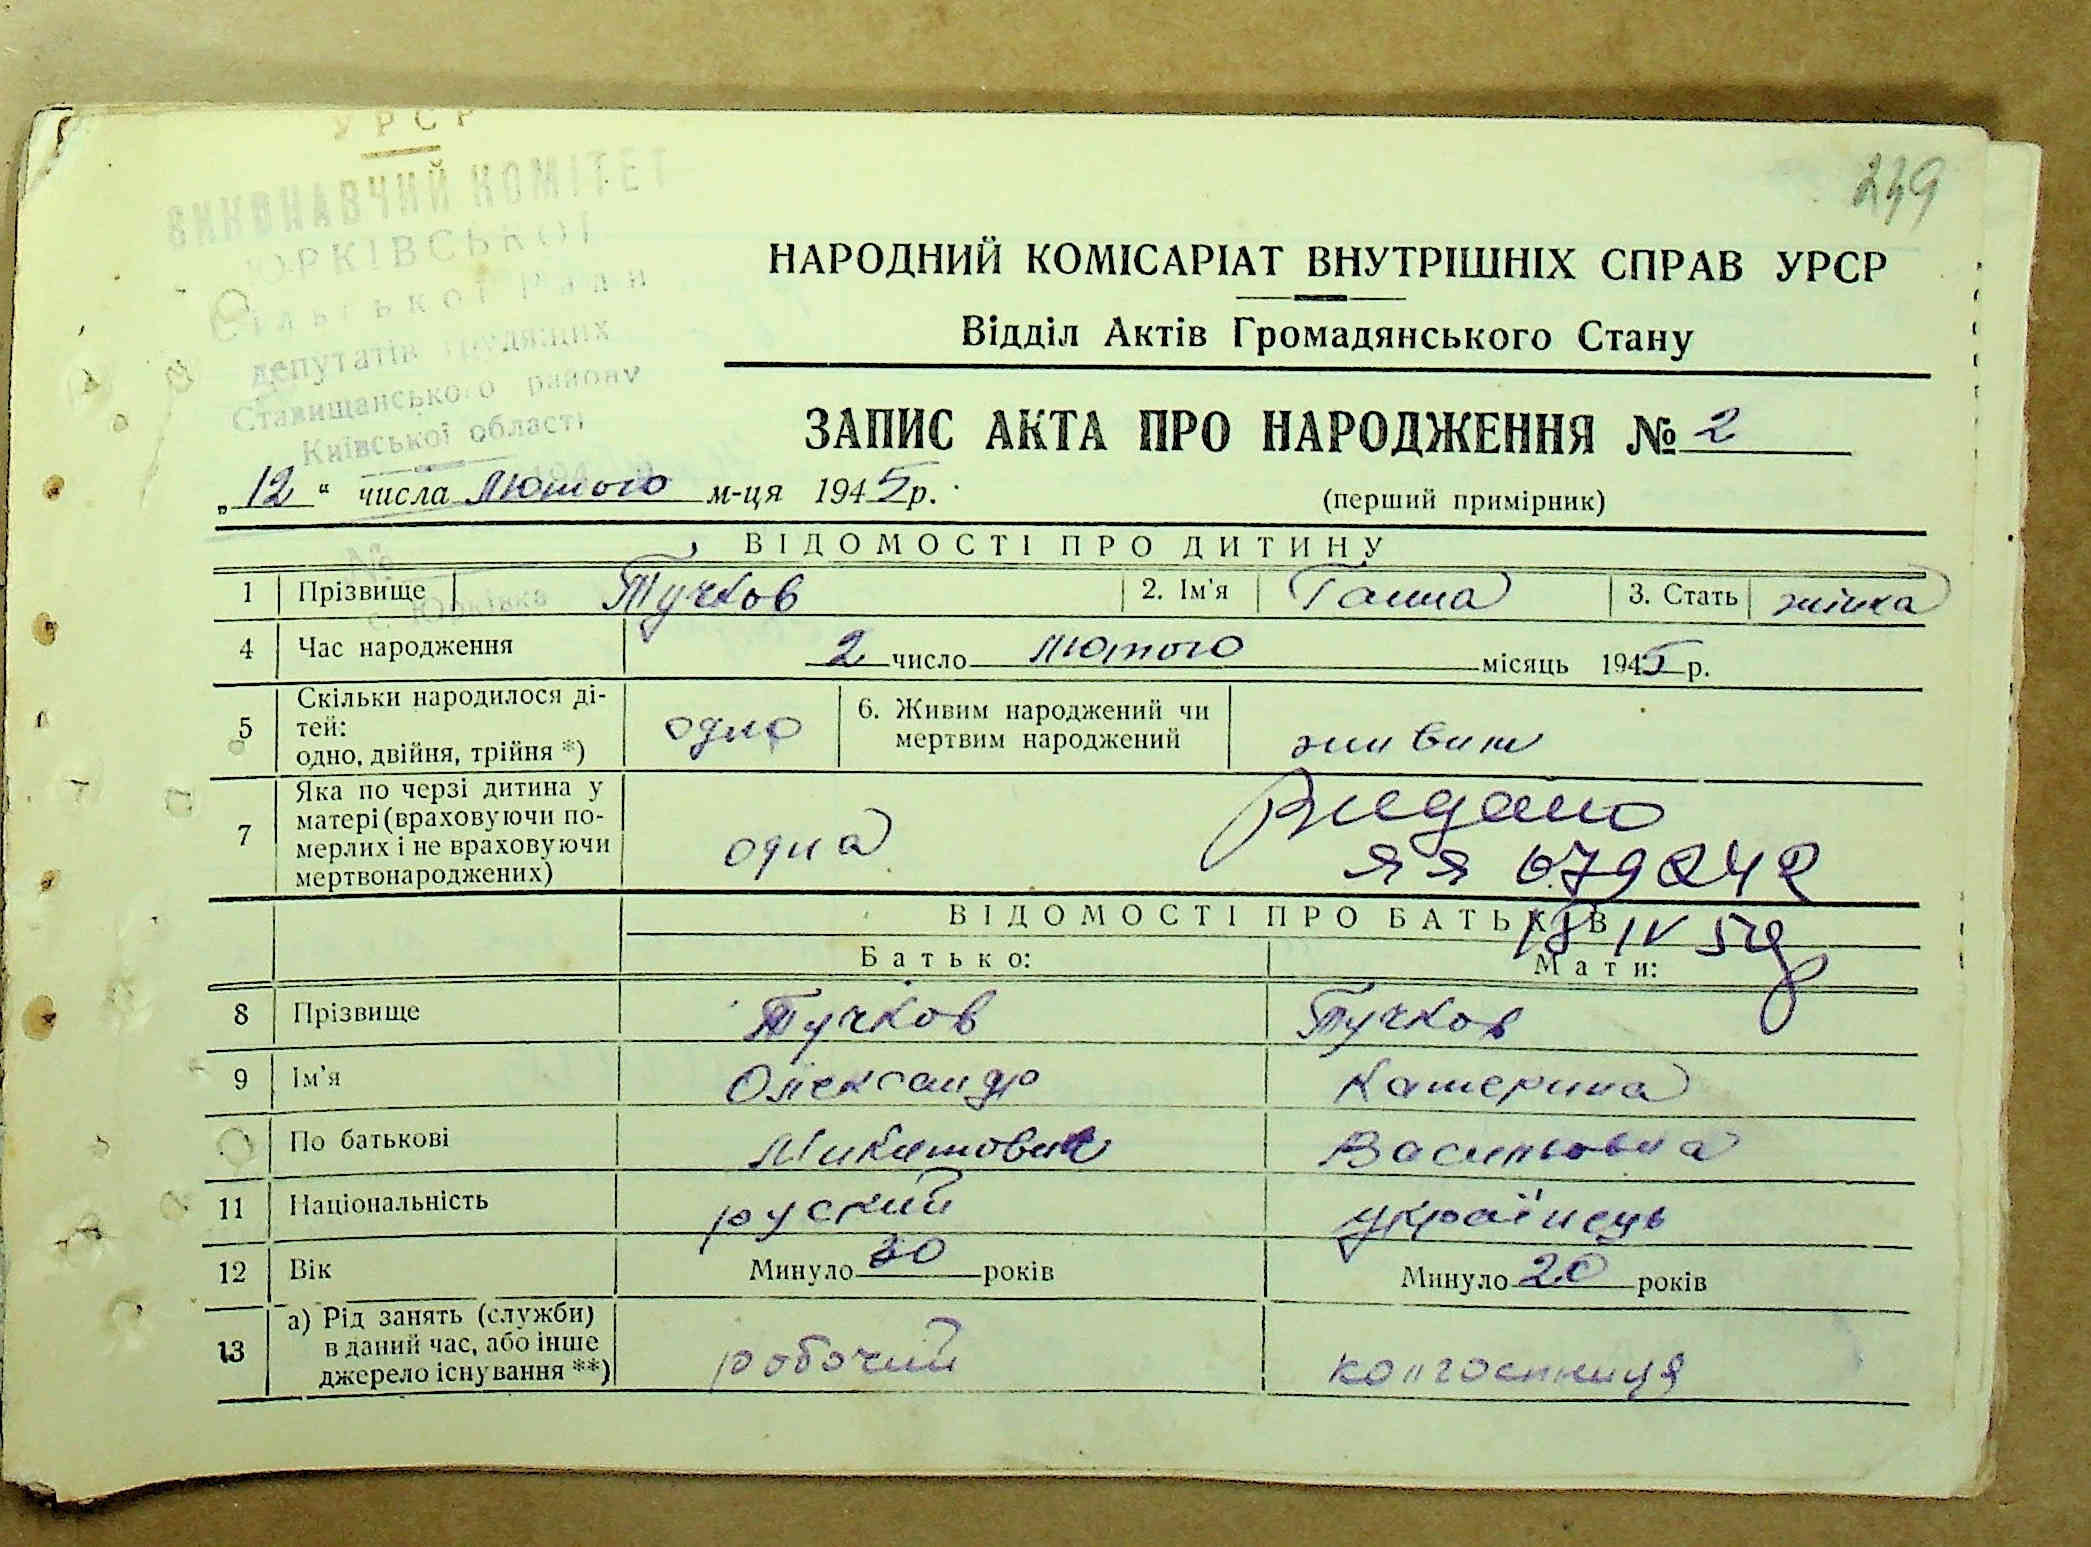 УРСР
ВИКОНАВЧИЙ КОМІТЕТ
ЮРКІВСЬКОЇ
Сільської Ради
депутатів трудящих
Ставищанського району
Київської області
249
НАРОДНИЙ КОМІСАРІАТ ВНУТРІШНІХ СПРАВ УРСР
Відділ Актів Громадянського Стану
ЗАПИС АКТА ПРО НАРОДЖЕННЯ № 2
„12“ числа лютого м-ця 1945 р.
(перший примірник)
№
с. Юрківка
ВІДОМОСТІ ПРО ДИТИНУ
1 Прізвище Тучков 2. Ім'я Ганна 3. Стать жінка
4 Час народження 2 число лютого місяць 1945 р.
5 Скільки народилося ді-
тей:
одно, двійня, трійня *) одно
6. Живим народжений чи
мертвим народжений живим
7 Яка по черзі дитина у
матері (враховуючи по-
мерлих і не враховуючи
мертвонароджених) одна
Видано
ЯЯ 079242
IV
ВІДОМОСТІ ПРО БАТЬКІВ
Батько: Мати:
8 Прізвище Тучков Тучков
9 Ім'я Олександр Катерина
По батькові Микитович Васильовна
11 Національність руский українець
12 Вік Минуло 30 років Минуло 20 років
13 а) Рід занять (служби)
в даний час, або інше
джерело існування **) робочий колгоспниця